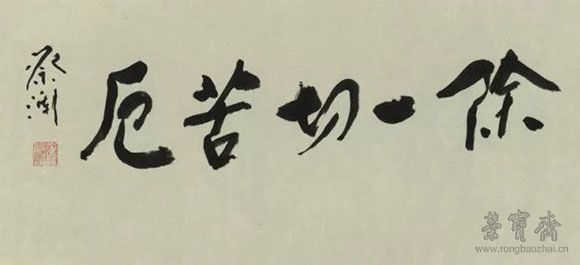 除一切苦厄
蔡瀾
榮寶齋
www.rongbaozhai.cn